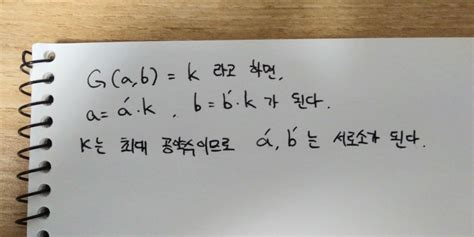 G(a,b) = k 라고 하면,
a= a'·k , b = b'·k 가 된다.
K는 최대 공약수이므로 a', b' 는 서로소가 된다.